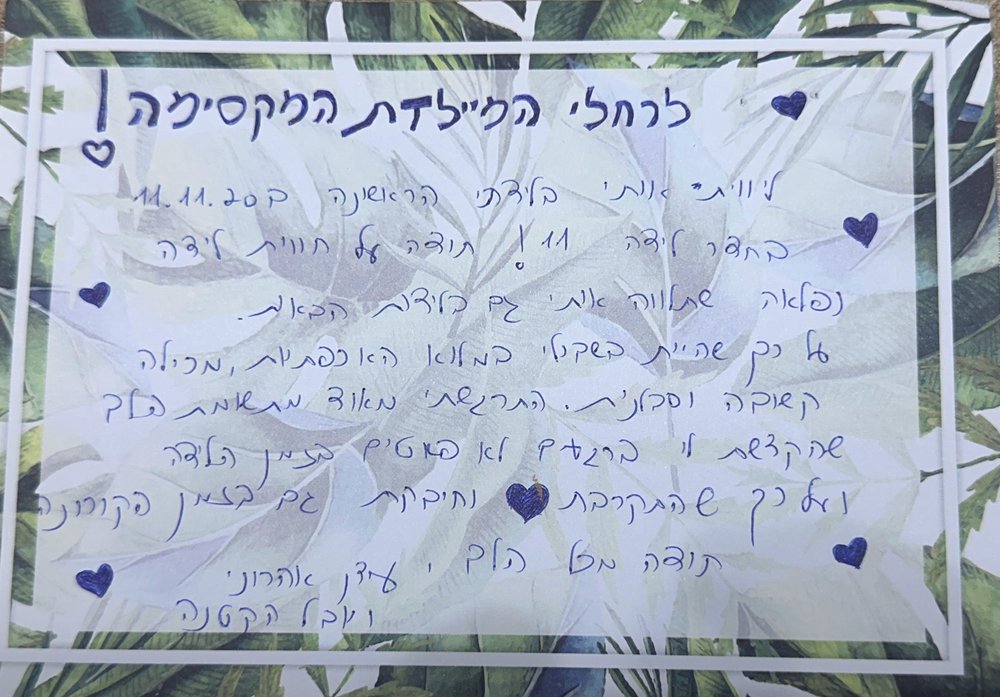 לרחלי המיילדת המקסימה!
ליווית אותי בלידתי הראשונה ב 11.11.20
בחדר לידה 11! תודה על חווית לידה
נפלאה שתלווה אותי גם בלידות הבאות.
על כך שהיית בשבילי במלוא האכפתיות, מכילה
קשובה וסבלנית. התרגשתי מאוד מתשומת הלב
שהקדשת לי ברגעים לא פשוטים בזמן הלידה
ועל כך שהתקרבת וחיבקת גם בזמן הקורונה
תודה מכל הלב, עידן אהרוני
ויובל הקטנה